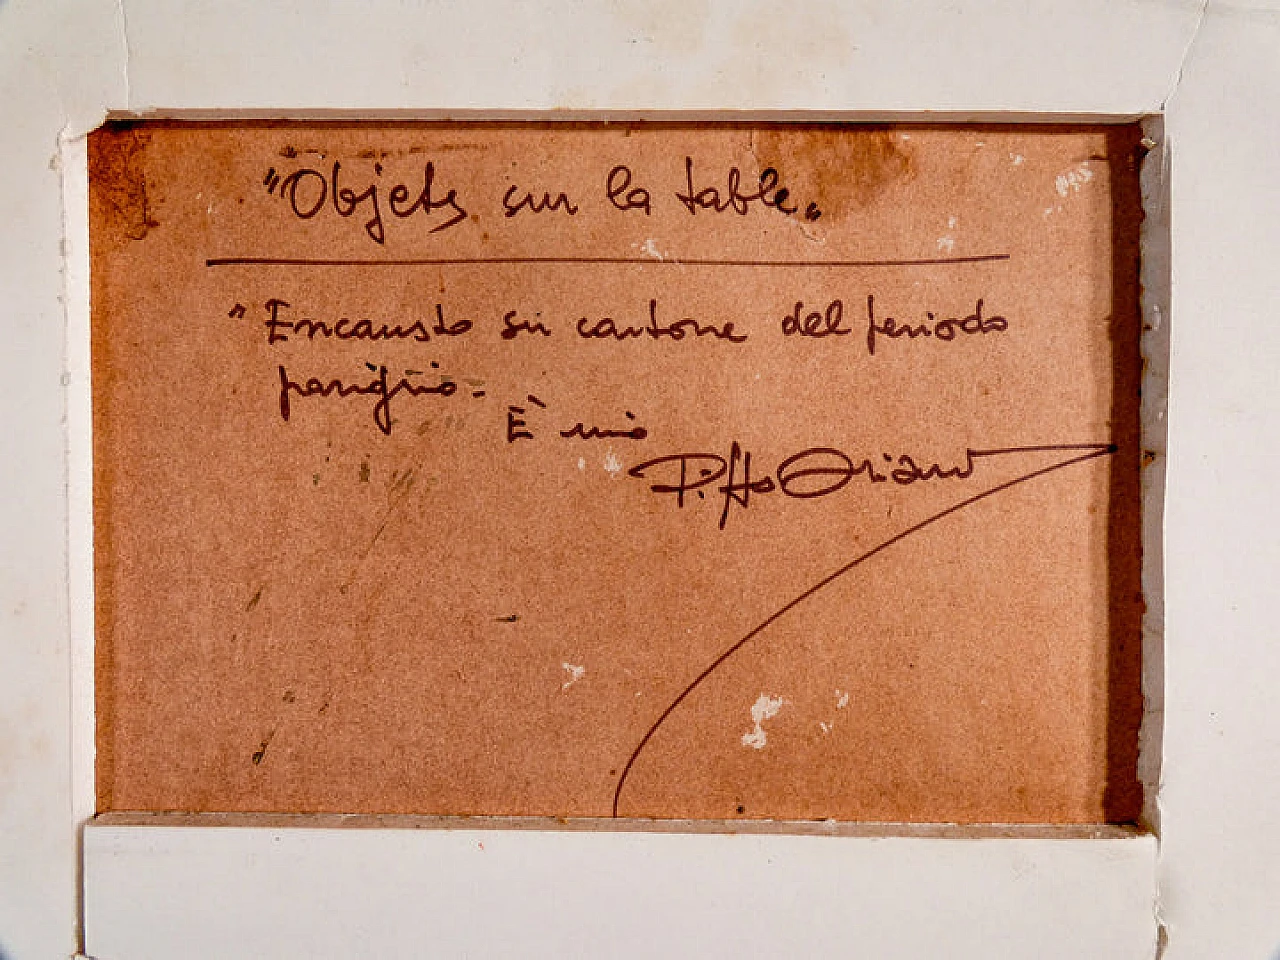 "Objets sur la table"
" Encausto su cartone del periodo
parigino -
È mio
Piffo Oriano